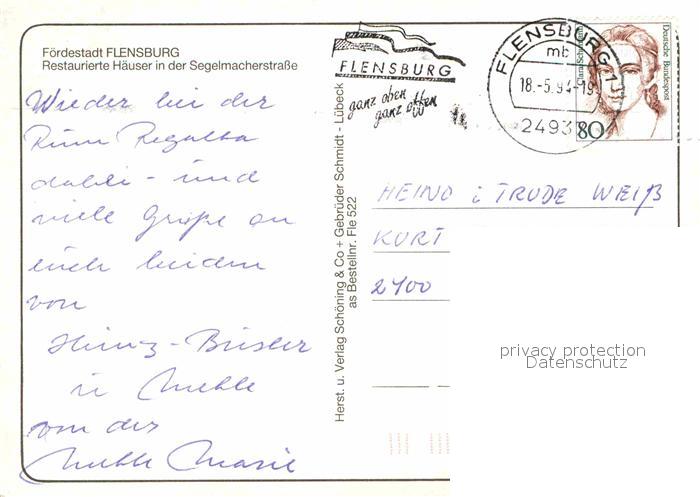 Fördestadt FLENSBURG
Restaurierte Häuser in der Segelmacherstraße
Wieder bei der
Rum Regatta
dabei - und
viele Grüße an
euch beiden
von
Heinz-
in
von der
FLENSBURG
ganz oben
ganz offen
FLENSBURG 1
mb
18.-5.94-19
2493
Deutsche Bundespost
Clara Schumann
80
Herst. u. Verlag Schöning & Co + Gebrüder Schmidt - Lübeck
as Bestellnr. Fle 522
HEINO i TRUDE WEIß
KURT
2400
privacy protection
Datenschutz